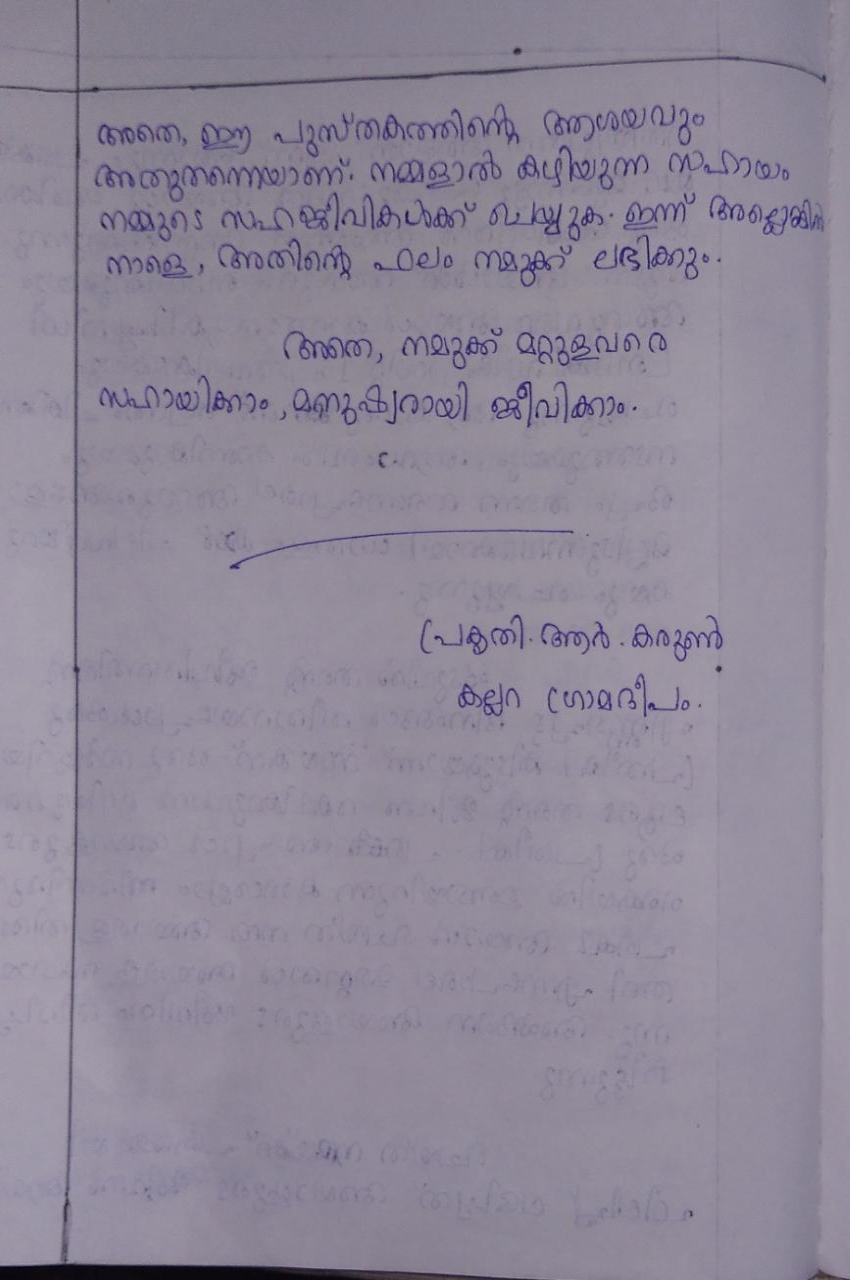 അതെ, ഈ പുസ്തകത്തിന്റെ ആശയവും
അതുതന്നെയാണ്. നമ്മളാൽ കഴിയുന്ന സഹായം
നമ്മുടെ സഹജീവികൾക്ക് ചെയ്യുക. ഇന്ന് അല്ലെങ്കിൽ
നാളെ, അതിന്റെ ഫലം നമുക്ക് ലഭിക്കും.
അതെ, നമുക്ക് മറ്റുളവരെ
സഹായിക്കാം, മണുഷ്യരായി ജീവിക്കാം.
പ്രകൃതി. ആർ. കരുൺ
കല്ലറ ഗ്രാമദീപം.